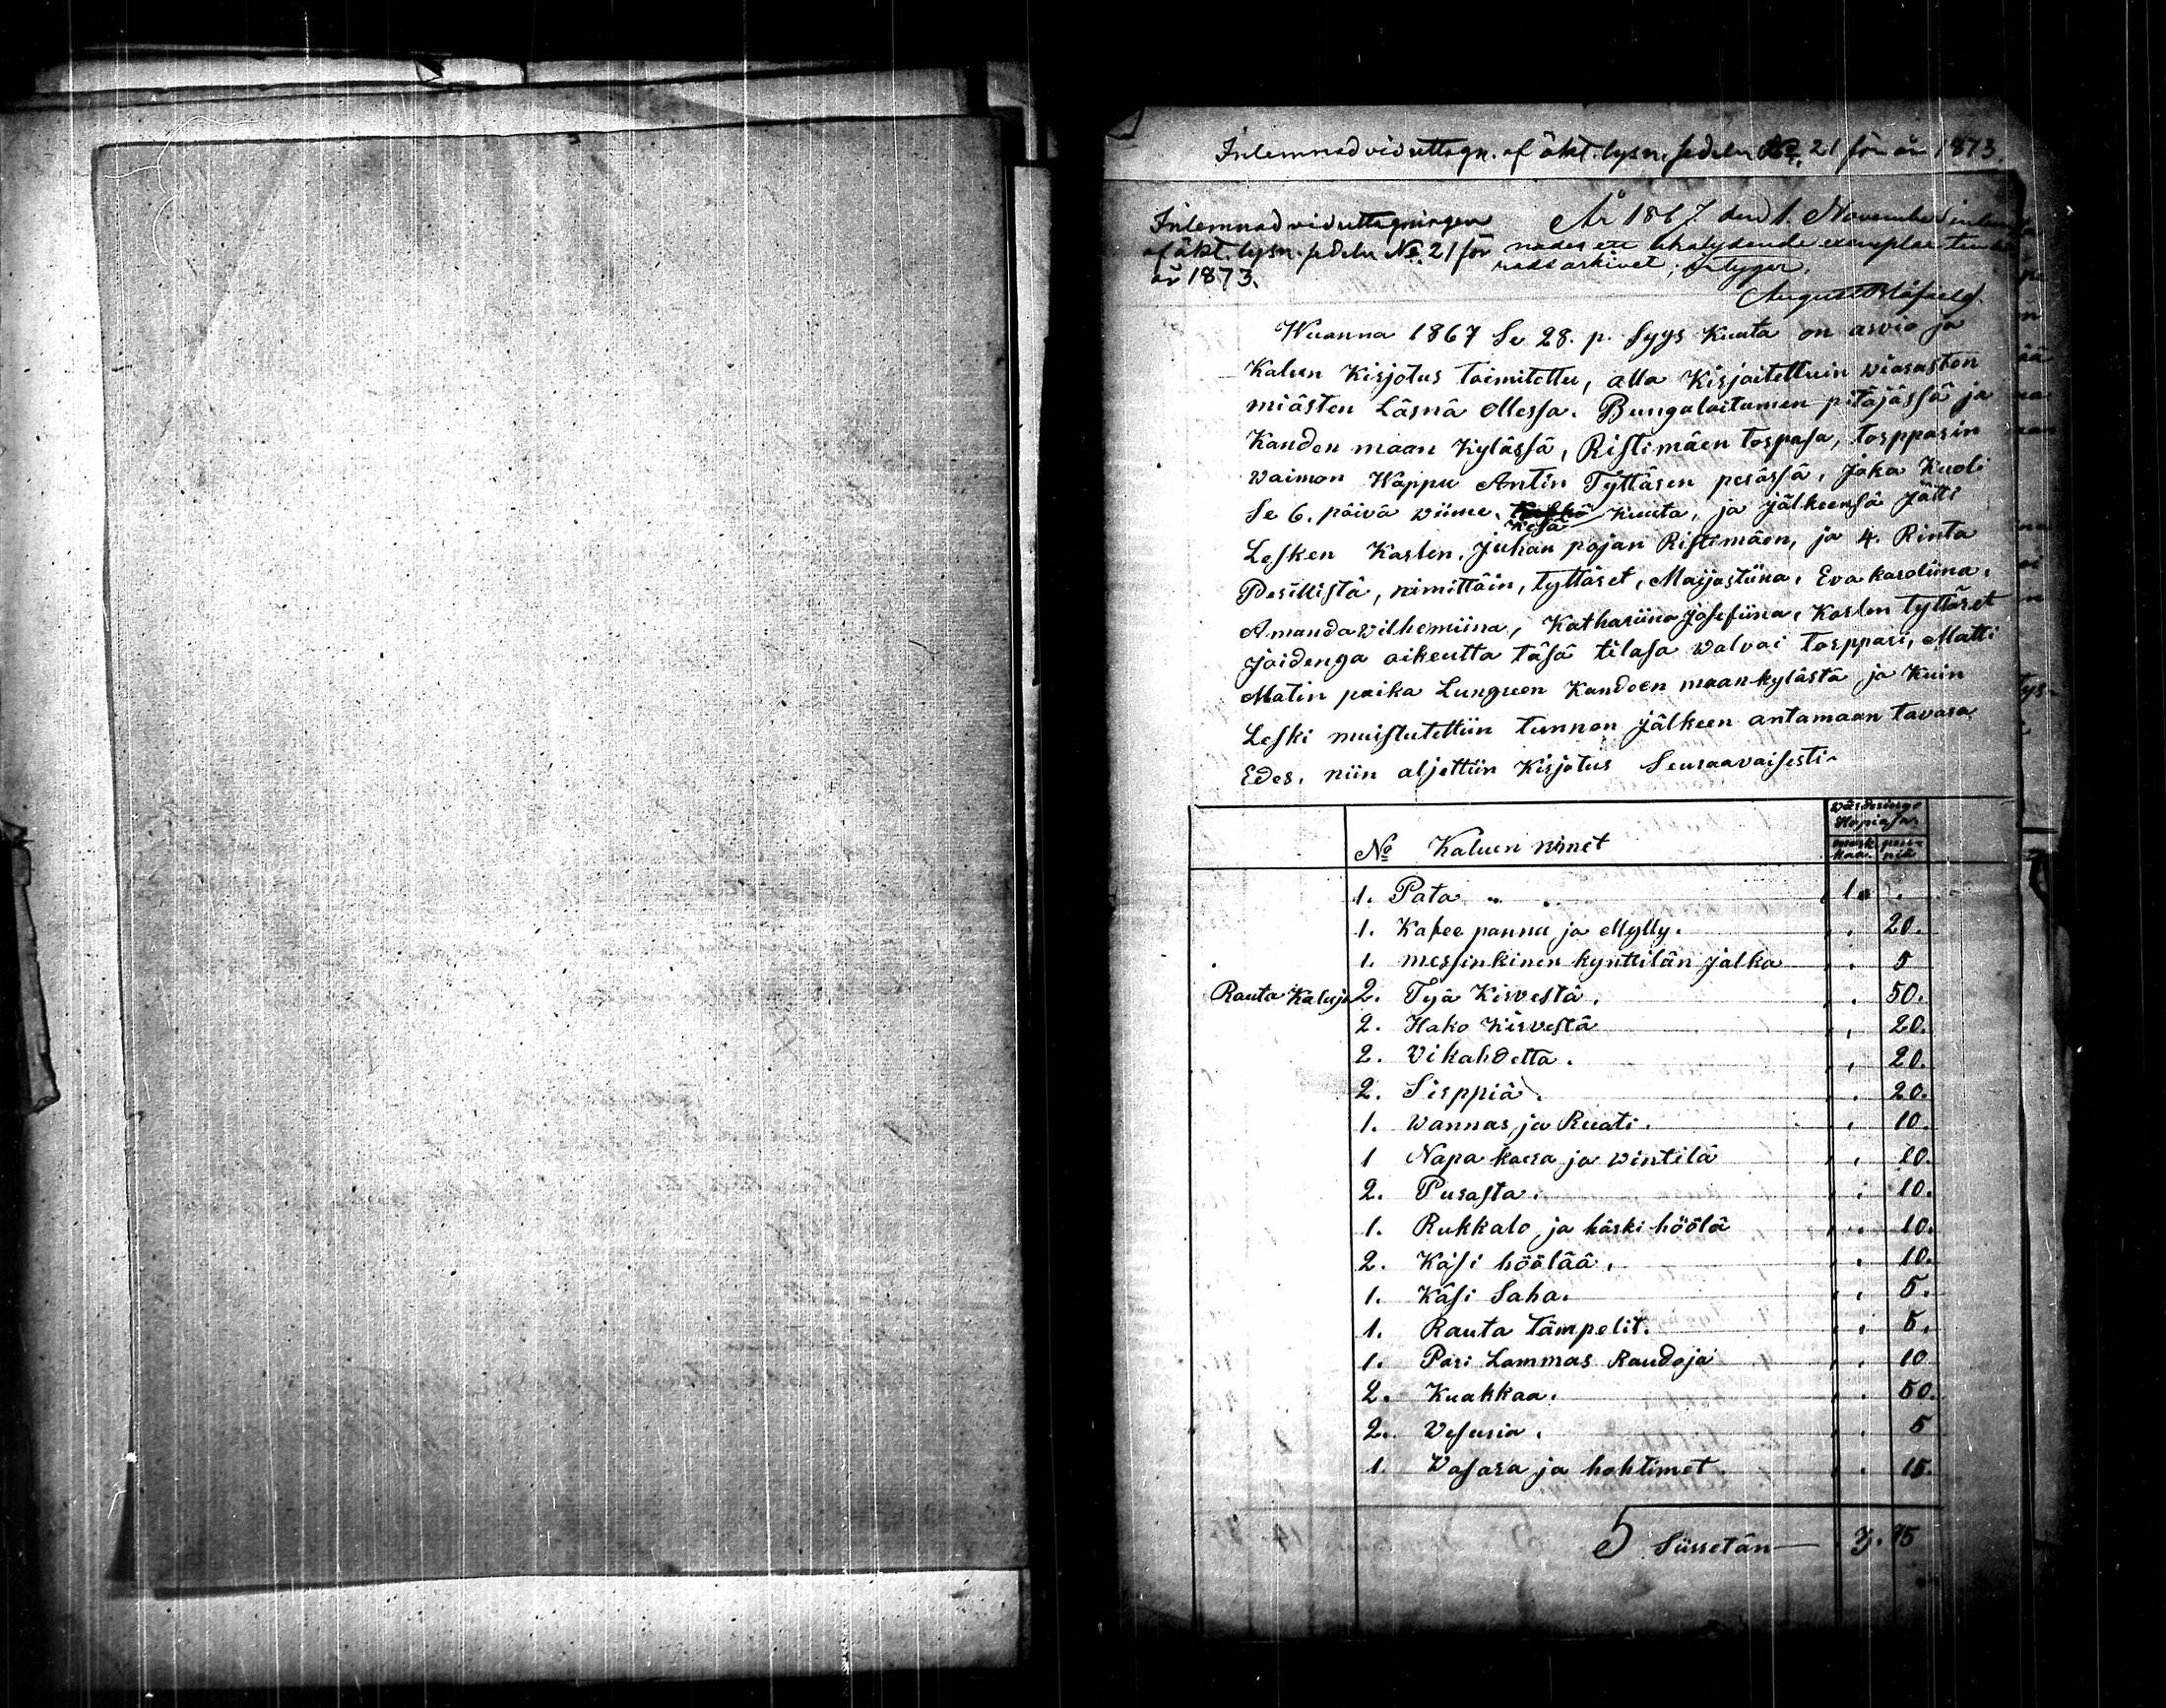 Inlemnad vid uttagn. af äkt. lysn. sedeln No. 21 för år 1873.
Inlemnad vid uttagningen
af äkt. lysn. sedeln No. 21 för
år 1873.
År 1867 den 1. November inlem
nades ett likalydande exemplar
arkivet, intygar.
August Blåfield
Wuonna 1867 Se 28. p. Syys Kuuta on arvio ja
Kalun Kirjotus toimitettu, alla Kirjoitettuin wierasten
miästen Läsnä ollessa. Pungalaitumen pitäjässä ja
Kanden maan Kylässä, Ristimäen torpasa, torpparin
waimon Wappu Antin Tyttären pesässä, Joka Kuoli
Se 6. päivä wiime Kesä Kuuta, ja jälkeensä Jätti
Lesken Karlen, Juhan pojan Ristimäen, ja 4. Rinta
Perillistä, nimittäin, tyttäret, Maijastiina, Eva karoliina,
Amanda wilhemiina, Kathariina josefiina, Karlen tyttäret
joidenga oikeutta täsä tilasa walvoi torppari, Matti
Matin poika Lungreen Kandeen maan kylästä ja Kuin
Leski muistutettiin tunnon jälkeen antamaan tavara
Edes, niin aljettiin Kirjotus Seuraavaisesti.
No Kaluen nimet
wärderinge
Hopiasa.
mark
kaa. pen-
niä
1. Pata " " 1.
1. Kafee pannu ja Mylly. 20.
1. messinkinen kynttilän jalka 5
Rauta Kaluja 2. Työ Kirvestä. 50.
2. Hako Kirvestä 20.
2. Vikahdetta. 20.
2. Sirppiä. 20.
1. wannas ja Ruati. 10.
1 Napa kaira ja wintilä 10.
2. Purasta. 10.
1. Rukkalo ja häski höölä 10.
2. Käsi höölää. 10.
1. Käsi Saha. 5.
1. Rauta tämpelit. 5.
1. Pari Lammas Raudoja 10
2. Kuakkaa. 50.
2. Wesuria. 5
1. Wasara ja hohtimet. 15.
Siirretän 3. 75